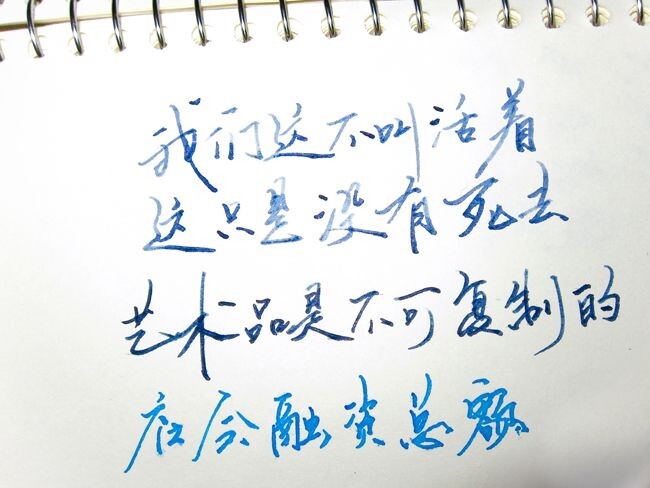 我们这不叫活着
这只是没有死去
艺术品是不可复制的
社会融资总额